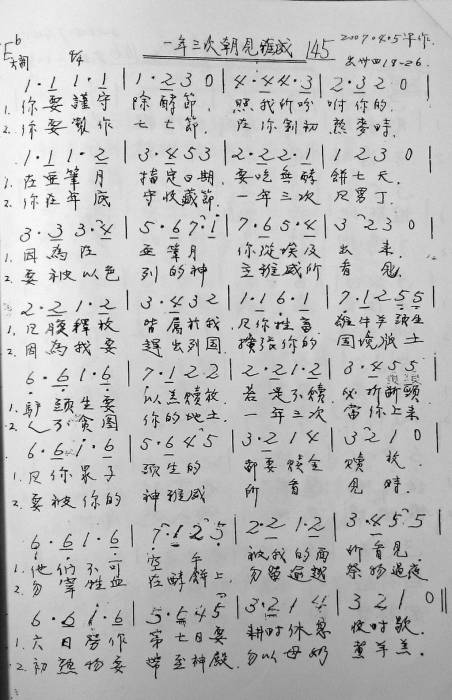 一年三次朝見雅威 145 2007.4.5 早作.
E♭ 大調 4/4 出廿四18-26.
1·1 1·1 | 1·2 3 0 | 4·4 4·3 | 2·3 2 0 |
1. 你要謹守 除酵節. 照我所吩 咐你的.
2. 你要製作 七七節. 在你割初 熟麥時.
1·1 1·2 | 3·4 5 3 | 2·2 2·1 | 1 2 3 0 |
1. 在亞筆月 指定日期. 要吃無酵 餅七天.
2. 你在年底 守收藏節. 一年三次 凡男丁.
3·3 3·4 | 5·6 7·1 | 7·6 5·4 | 3 2 3 0 |
1. 因為在 亞筆月 你從埃及 出來.
2. 要被以色 列的神 主雅威所 看見.
2·2 1·2 | 3·4 3 2 | 1·1 6·1 | 7·1 2 5 5 |
1. 凡胺釋放 皆屬於我. 凡你牲畜 雄牛羊頭生
2. 因為我要 趕出列國. 擴張你的 国境脫土
6·6 1·6 | 7·1 2 2 | 2·2 1·2 | 3·4 5 5 |
1. 驢頭生要 以羔贖放 若是不贖 必折斷頸
2. 人不貪圖 你的地土. 一年三次 當你上來
6·6 1·6 | 5·6 4 5 | 3·2 1 4 | 3 2 1 0 |
1. 凡你眾子 頭生的 都要贖金 贖放.
2. 要被你的 神雅威 所看 見時.
6·6 1·6 | 7·1 2 5 | 2·2 1·2 | 3·4 5 5 |
1. 他們不可 空手 被我的面 所看見
2. 勿宰牲血 在酵餅上. 勿留逾越 祭物過夜
6·6 1·6 | 5·6 4 5 | 3·2 1 4 | 3 2 1 0 ||
1. 六日勞作 第七日要 耕時休息 收時歇.
2. 初熟物要 帶至神殿. 勿以母奶 煮羊羔.